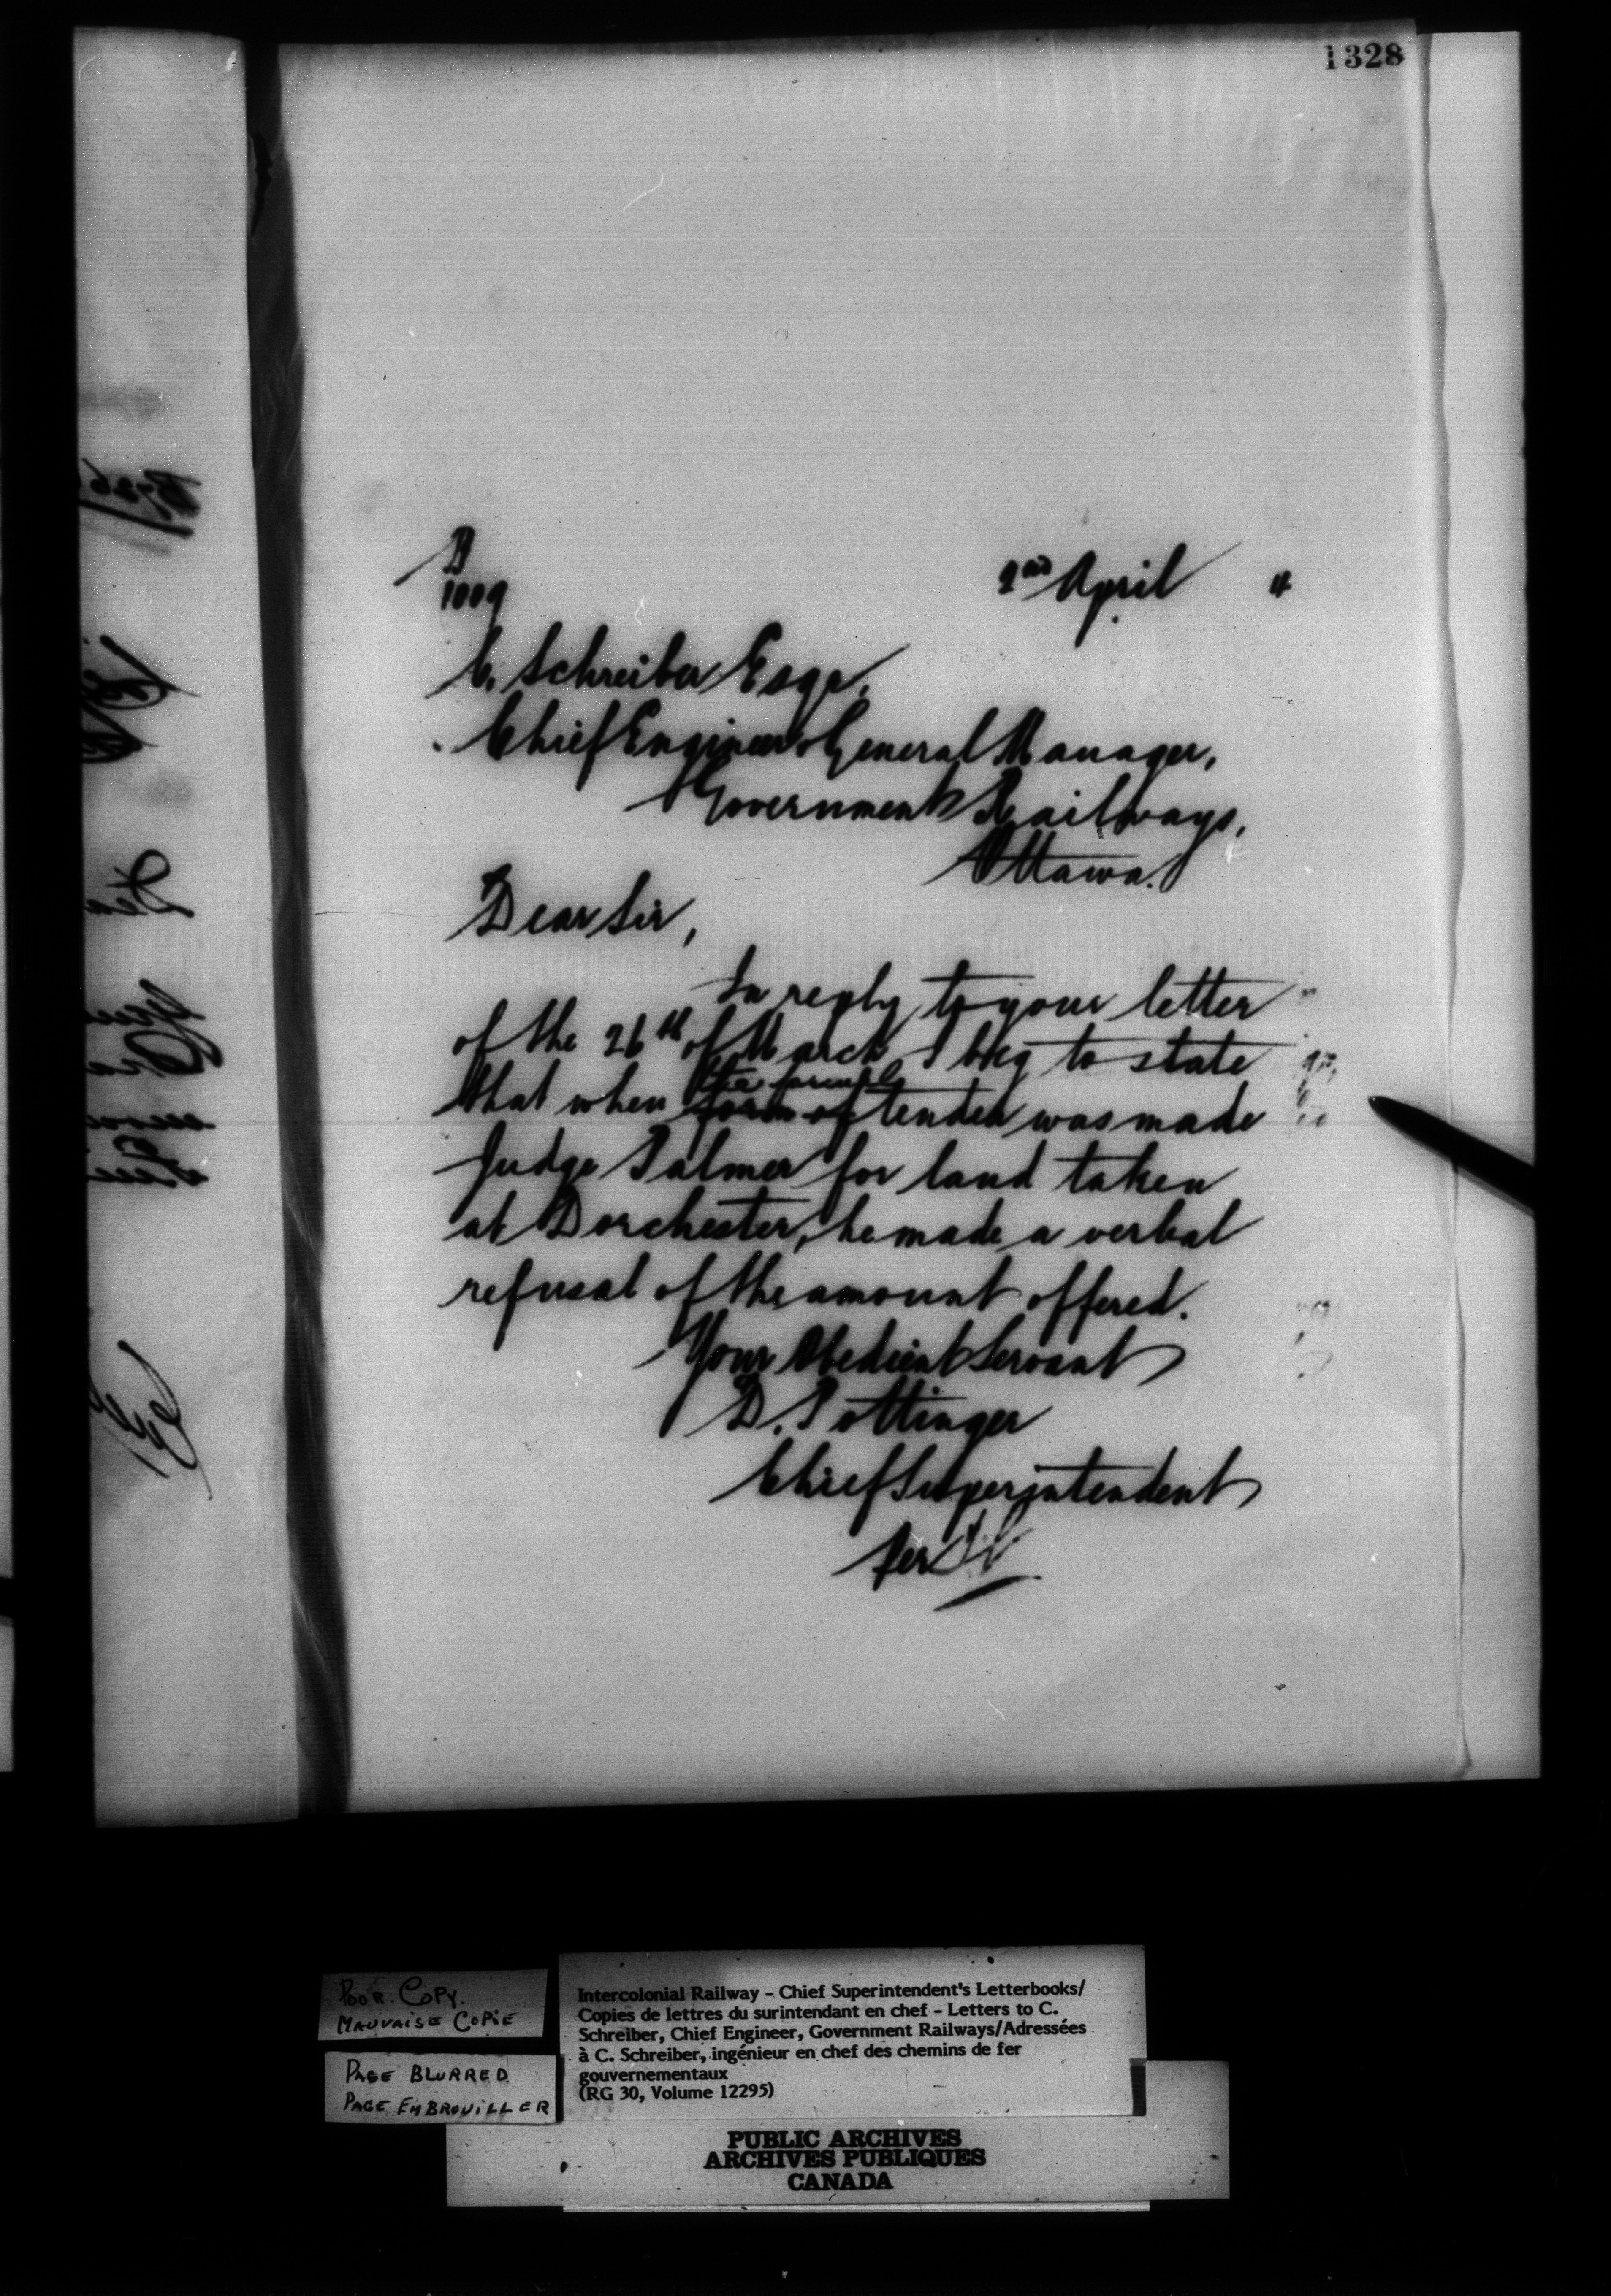 1328
B
1009
2nd April 4
C. Schreiber Esqr,
Chief Engineer & General Manager,
Government Railways,
Ottawa.
Dear Sir,
In reply to your letter
of the 26th of March I beg to state
that when the formal tender was made
Judge Palmer for land taken
at Dorchester, he made a verbal
refusal of the amount offered.
Your Obedient Servant
D. Pottinger
Chief Superintendent
Per
POOR COPY.
MAUVAISE COPIE
PAGE BLURRED
PAGE EMBROUILLER
Intercolonial Railway – Chief Superintendent's Letterbooks/
Copies de lettres du surintendant en chef – Letters to C.
Schreiber, Chief Engineer, Government Railways/Adressées
à C. Schreiber, ingénieur en chef des chemins de fer
gouvernementaux
(RG 30, Volume 12295)
PUBLIC ARCHIVES
ARCHIVES PUBLIQUES
CANADA